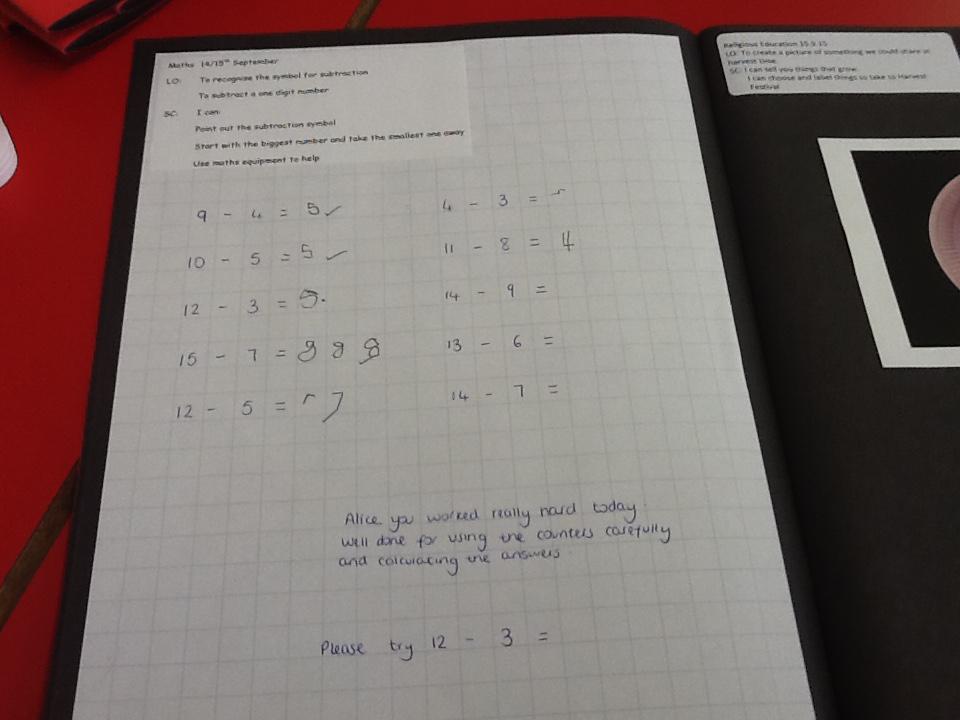 Maths 14/15th September
LO: To recognise the symbol for subtraction
To subtract a one digit number
SC: I can:
Point out the subtraction symbol
Start with the biggest number and take the smallest one away
Use maths equipment to help
9 - 4 = 5 ✓
10 - 5 = 5 ✓
12 - 3 = 5.
15 - 7 = 8 8 8
12 - 5 = 7
4 - 3 =
11 - 8 = 4
14 - 9 =
13 - 6 =
14 - 7 =
Alice you worked really hard today.
Well done for using the counters carefully
and calculating the answers.
Please try 12 - 3 =
Religious Education 15.9.15
LO: To create a picture of something we could share at
harvest time.
SC: I can tell you things that grow.
I can choose and label things to take to Harvest
Festival